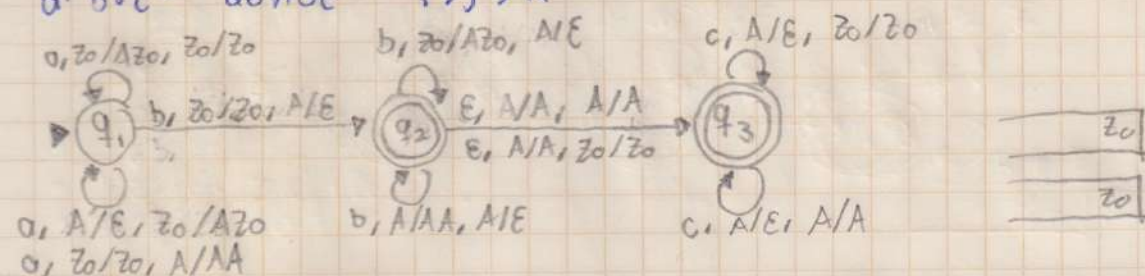 a, Z0/AZ0, Z0/Z0
b, Z0/AZ0, A/ε
c, A/ε, Z0/Z0
q1
b, Z0/Z0, A/ε
q2
ε, A/A, A/A
ε, A/A, Z0/Z0
q3
Z0
Z0
a, A/ε, Z0/AZ0
a, Z0/Z0, A/AA
b, A/AA, A/ε
c, A/ε, A/A